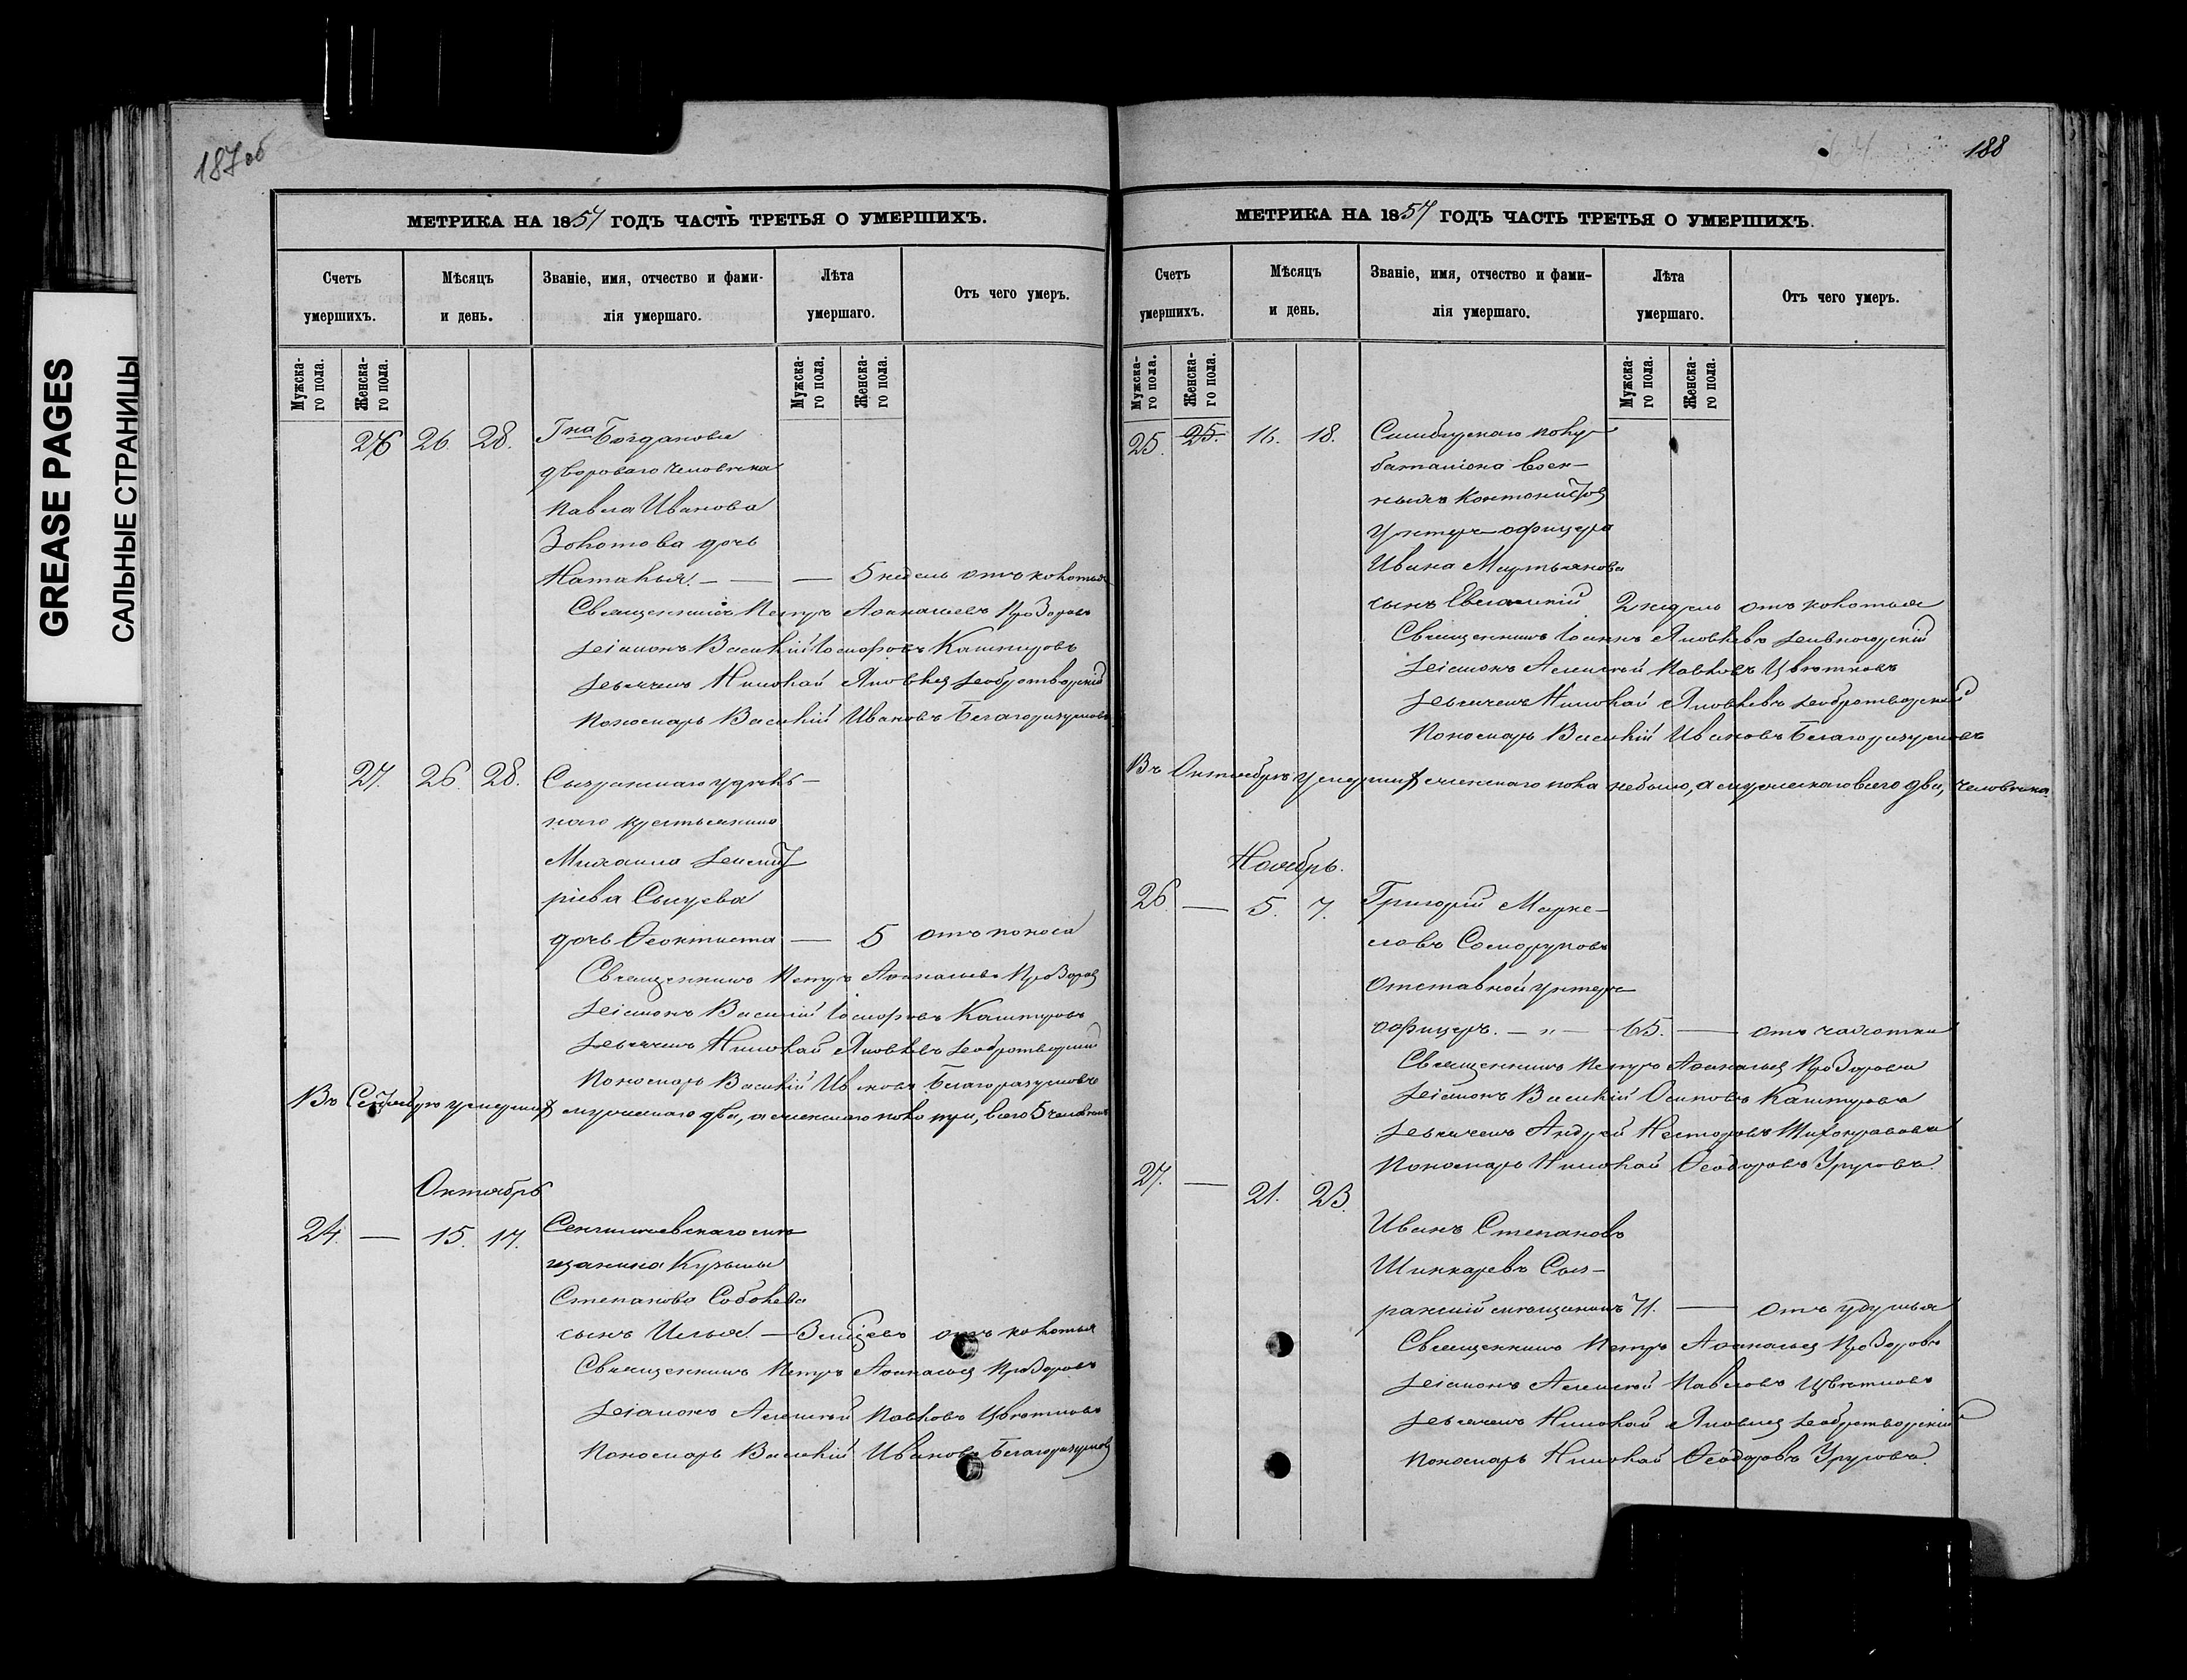 GREASE PAGES
САЛЬНЫЕ СТРАНИЦЫ
187об
МЕТРИКА НА 1857 ГОДЪ ЧАСТЬ ТРЕТЬЯ О УМЕРШИХЪ.
Счетъ умершихъ.
Мѣсяцъ и день.
Званіе, имя, отчество и фами-
лія умершаго.
Лѣта умершаго.
Отъ чего умеръ.
Мужска-
го пола.
Женска-
го пола.
Мужска-
го пола.
Женска-
го пола.
26 26. 28. Гна Богданова
двороваго человѣка
Павла Иванова
Золотова дочь
Наталья. — — — 5 недель отъ колотья
Священникъ Петръ Аѳанасьевъ Прозоровъ
Діаконъ Василій Іосифовъ Каштуровъ
Дьячекъ Николай Яковлев Добротворскій
Пономарь Василій Ивановъ Благоразумовъ
27. 26. 28. Сызранскаго удѣль-
наго крестьянина
Михаила Димит
ріева Сызуева
дочь Ѳеоктиста — 5 отъ поноса
Священникъ Петръ Аѳанасьевъ Прозоров
Діаконъ Василій Іосифовъ Каштуровъ
Дьячекъ Николай Яковлевъ Добротворскій
Пономарь Василій Ивановъ Благоразумовъ
Въ Сентябрѣ умерших мужескаго два, а женскаго пола три, всего 5 человѣкъ
Октябрь
24. — 15. 17. Сенгилеевскаго мѣ-
щанина Кузьмы
Степанова Соболева
сынъ Илья. — 3 місцевъ отъ колотья
Священникъ Петръ Аѳанасьев Прозоровъ
Діаконъ Алексѣй Павловъ Цвѣтковъ
Пономарь Василій Ивановъ Благоразумов
188
МЕТРИКА НА 1857 ГОДЪ ЧАСТЬ ТРЕТЬЯ О УМЕРШИХЪ.
Счетъ умершихъ.
Мѣсяцъ и день.
Званіе, имя, отчество и фами-
лія умершаго.
Лѣта умершаго.
Отъ чего умеръ.
Мужска-
го пола.
Женска-
го пола.
Мужска-
го пола.
Женска-
го пола.
25. 25. 16. 18. Симбирскаго полу-
баталіона воен-
ныхъ кантонистов
унтеръ-офицера
Ивана Мартьянова
сынъ Евгеній 2 недель отъ колотья
Священникъ Іоаннъ Яковлевъ
Діаконъ Алексѣй Павловъ Цвѣтковъ
Дьячекъ Николай Яковлевъ Добротворскій
Пономарь Василій Ивановъ Благоразумовъ
Въ Октябрѣ умерших женскаго пола небыло, а мужескаго всего два, человѣка.
Ноябрь.
26. — 5. 7. Григорій Марке-
ловъ Саморуковъ
Отставной унтеръ
офицеръ. — " — 65. — отъ чахотки
Священникъ Петръ Аѳанасьев Прозоровъ
Діаконъ Василій Осиповъ Каштуровъ
Дьячекъ Андрей Несторовъ Тихонравовъ
Пономарь Николай Ѳеодоровъ Урусовъ.
27. — 21. 23.
Иванъ Степановъ
Шинкаревъ Сыз-
ранскій мѣщанинъ 71. — отъ удушья
Священникъ Петръ Аѳанасьев Прозоровъ
Діаконъ Алексѣй Павловъ Цвѣтковъ
Дьячекъ Николай Яковлев Добротворскій
Пономарь Николай Ѳеодоровъ Урусовъ.